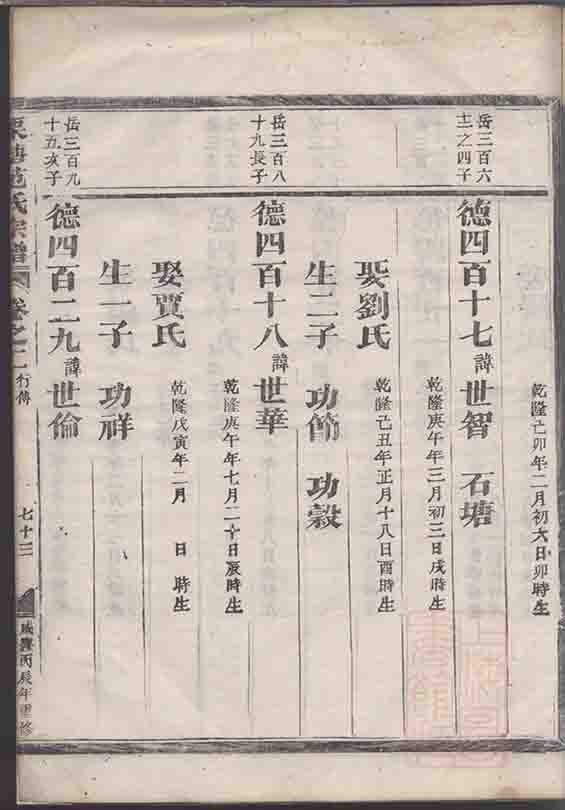 乾隆己卯年二月初六日卯時生
岳三百六
十二之四子
德四百十七 諱 世智 石塘
乾隆庚午年三月初三日戌時生
娶劉氏
乾隆己丑年正月十八日酉時生
生二子 功節 功穀
岳三百八
十九長子
德四百十八 諱 世華
乾隆庚午年七月二十日辰時生
娶賈氏
乾隆戊寅年二月 日 時生
生一子 功祥
岳三百九
十五次子
德四百二九 諱 世倫
范氏宗譜 卷之二 行傳 七十三 咸豐丙辰年重修